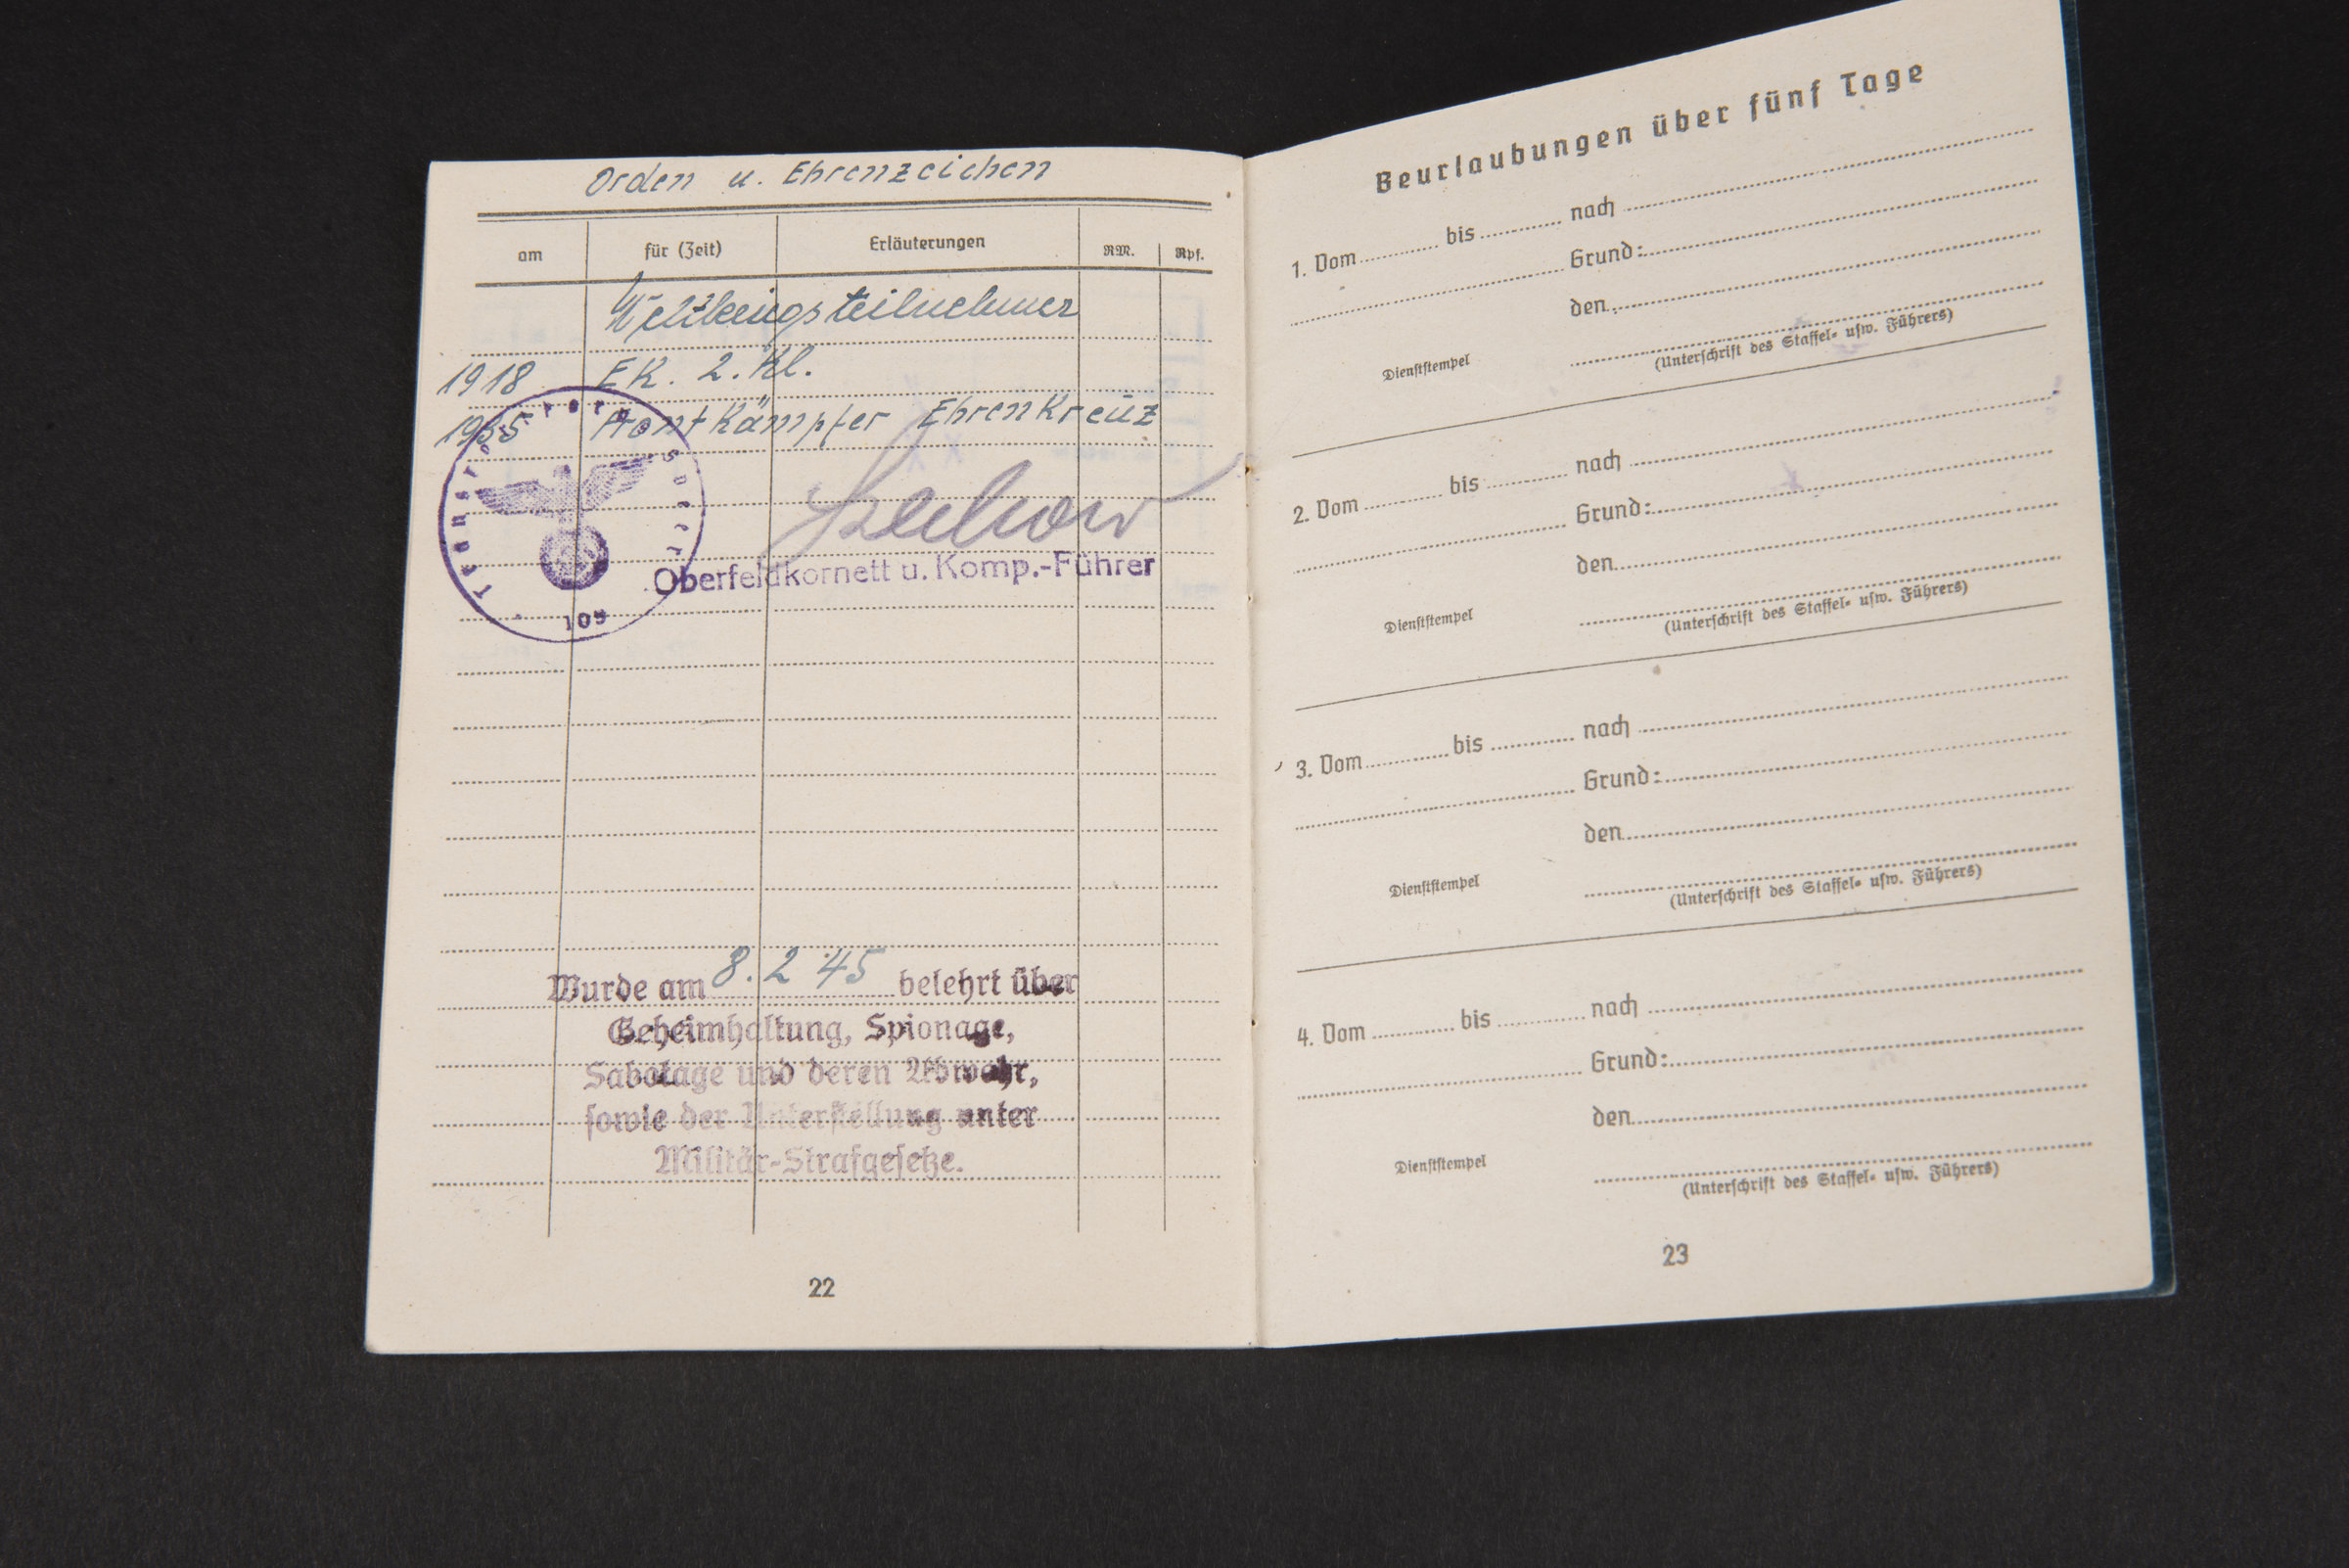 Orden u. Ehrenzeichen
am für (Zeit) Erläuterungen RM. Rpf.
Weltkriegsteilnehmer
1918 EK. 2. Kl.
1935 Frontkämpfer Ehrenkreuz
Transportkorps Speer
109
Oberfeldkornett u. Komp.-Führer
Wurde am 8. 2 45 belehrt über
Geheimhaltung, Spionage,
Sabotage und deren Abwehr,
sowie der Unterstellung unter
Militär-Strafgesetze.
22
Beurlaubungen über fünf Tage
1. Vom bis nach
Grund:
den
Dienststempel
(Unterschrift des Staffel- usw. Führers)
2. Vom bis nach
Grund:
den
Dienststempel
(Unterschrift des Staffel- usw. Führers)
3. Vom bis nach
Grund:
den
Dienststempel
(Unterschrift des Staffel- usw. Führers)
4. Vom bis nach
Grund:
den
Dienststempel
(Unterschrift des Staffel- usw. Führers)
23